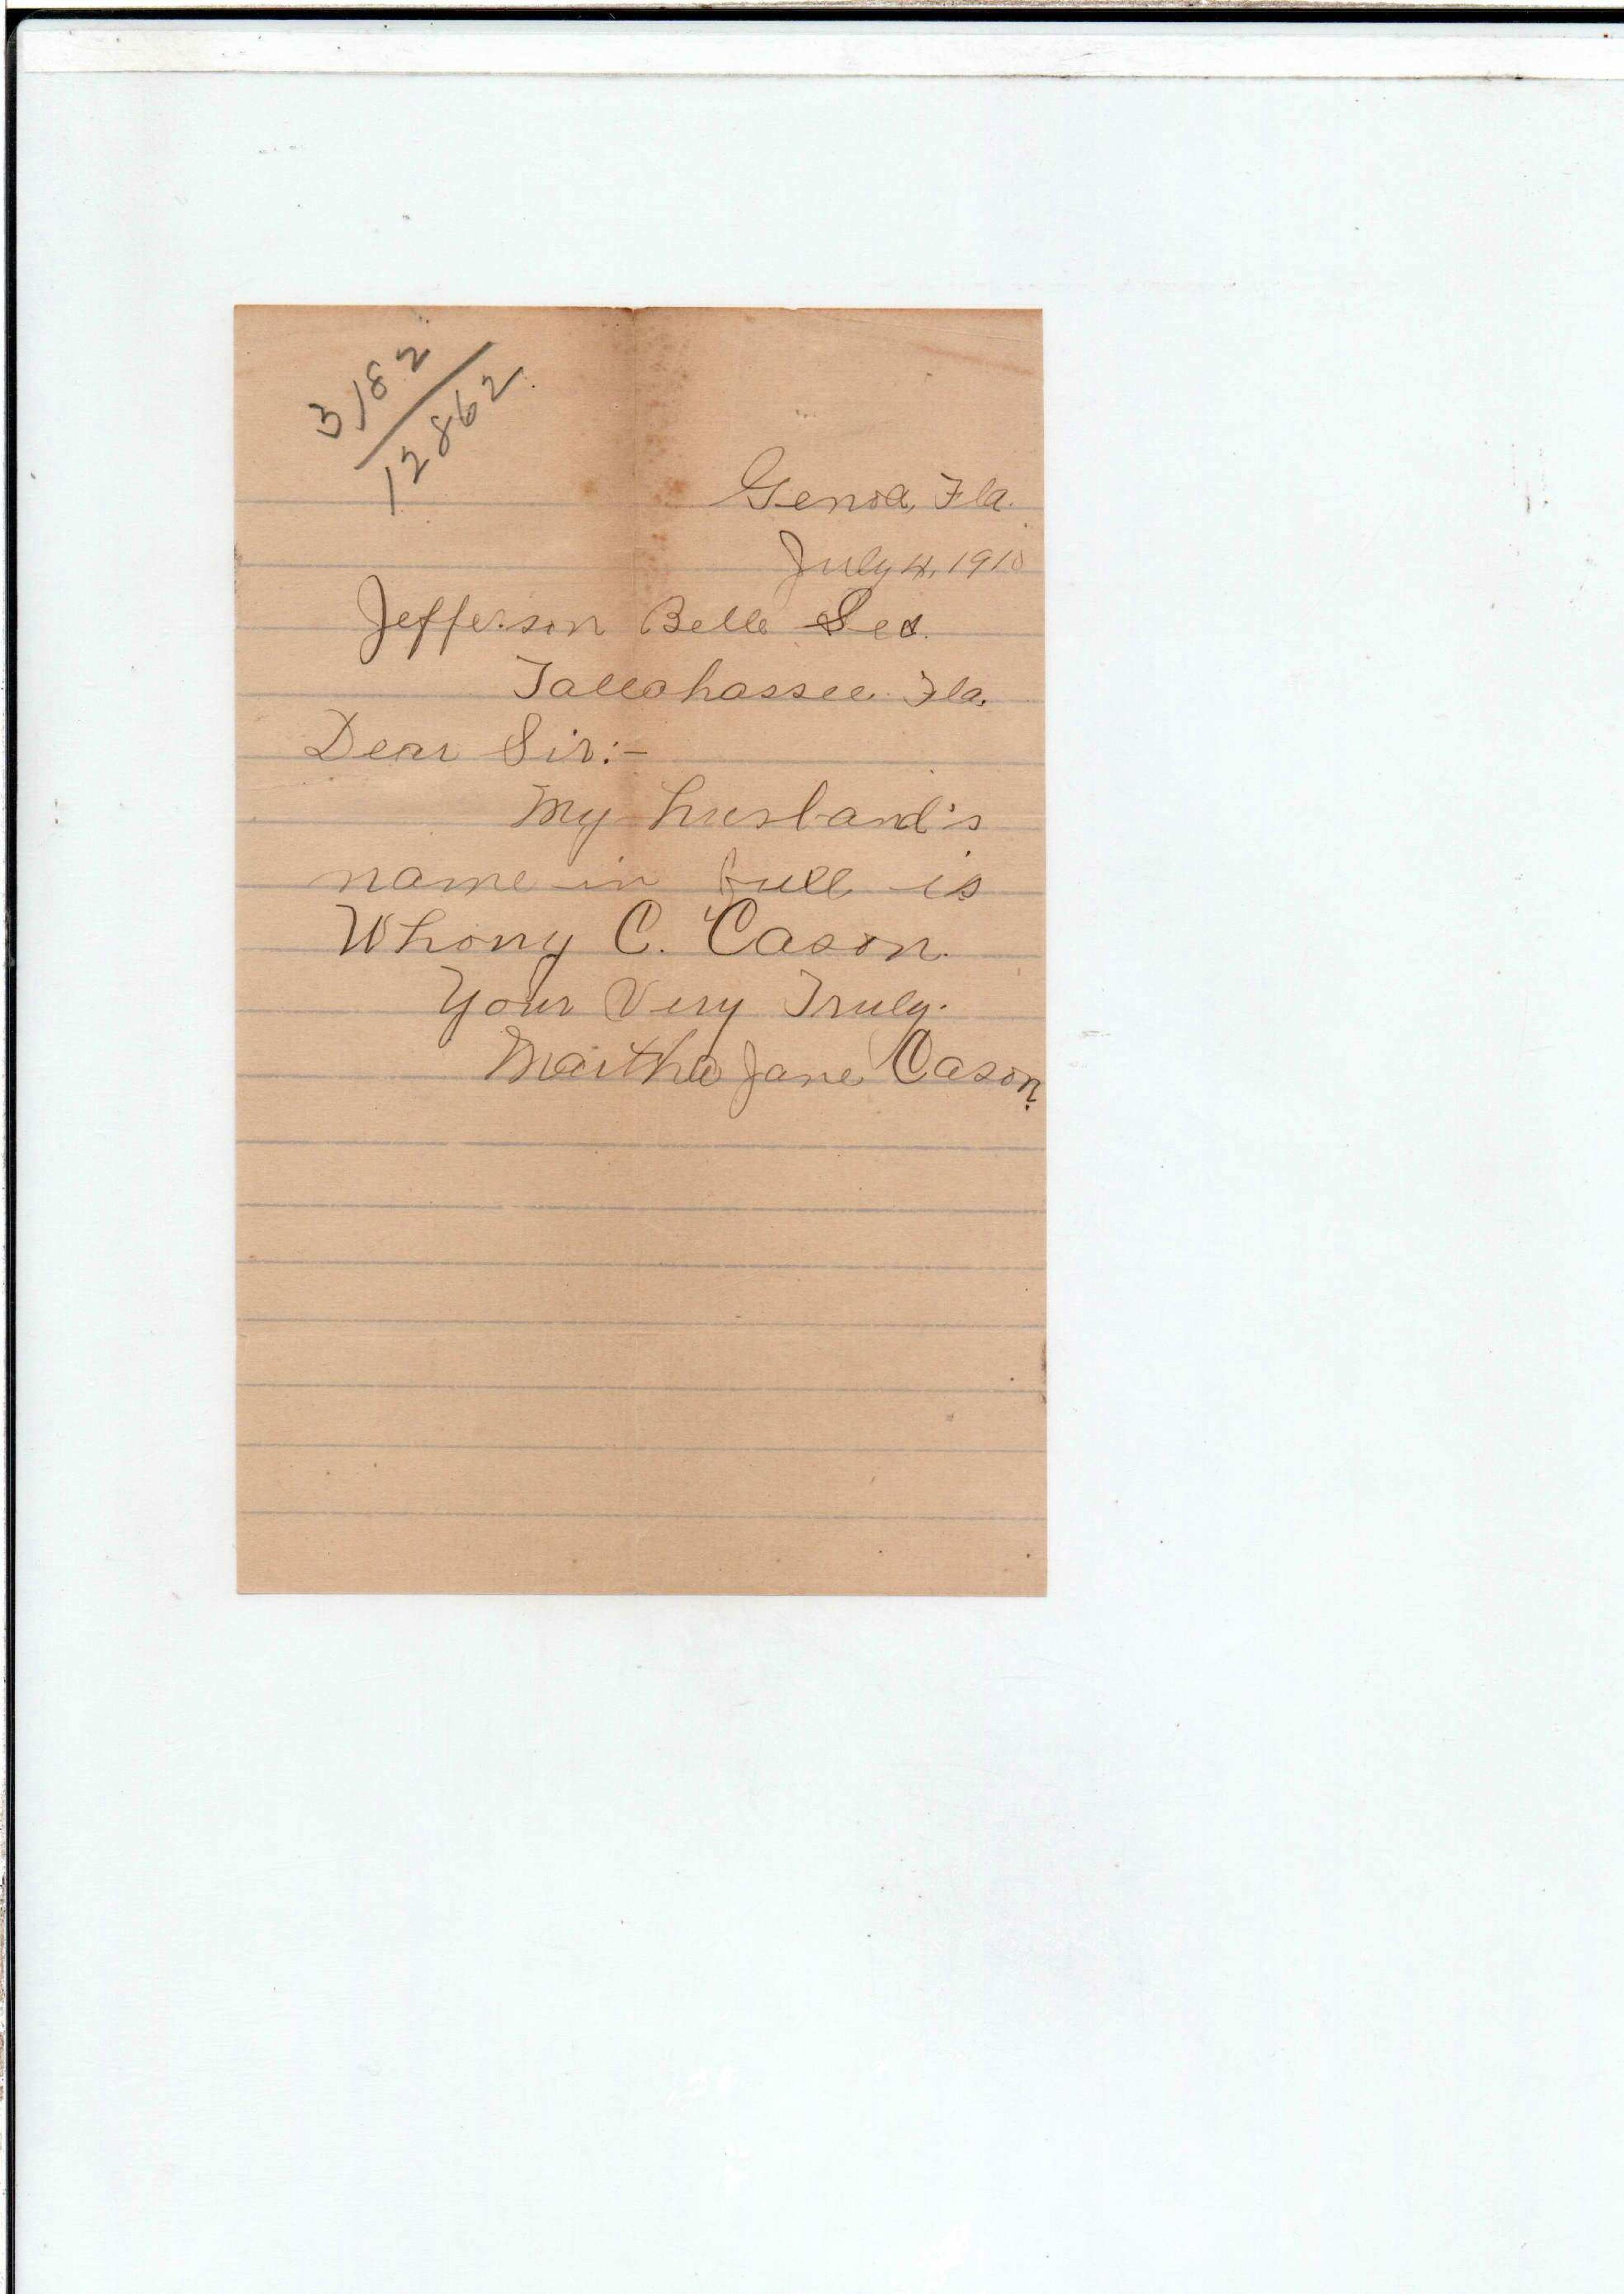 3182
12862
Genoa, Fla.
July 4, 1910
Jefferson Belle Sec.
Tallahassee Fla.
Dear Sir:-
My husband's
name in full is
Whony C. Cason.
Your Very Truly.
Martha Jane Cason.